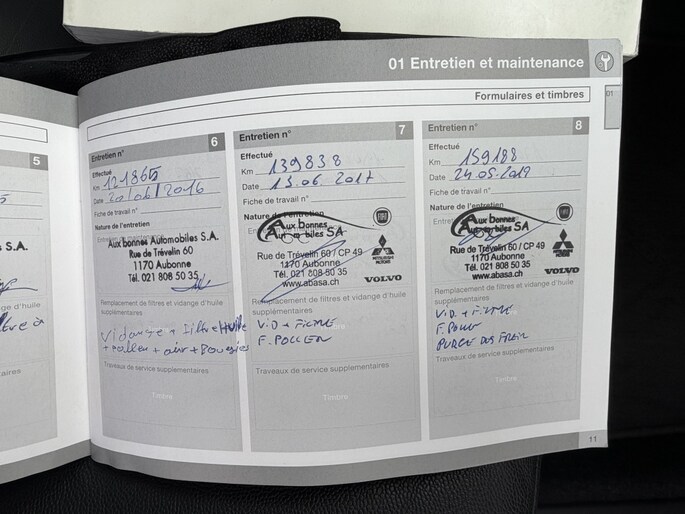 01 Entretien et maintenance
01
Formulaires et timbres
5
S.A.
Entretien n° 6
Effectué
Km 121865
Date 20/06/2016
Fiche de travail n°
Nature de l'entretien
Aux bonnes Automobiles S.A.
Rue de Trévelin 60
1170 Aubonne
Tél. 021 808 50 35
Remplacement de filtres et vidange d'huile
supplémentaires
Vidange + filtre Huile
+ pollen + air + Bougies
Traveaux de service supplémentaires
Timbre
Entretien n° 7
Effectué
Km 139838
Date 13.06.2017
Fiche de travail n°
Nature de l'entretien
Aux bonnes
Automobiles SA
FIAT
Rue de Trévelin 60 / CP 49
1170 Aubonne
Tél. 021 808 50 35
www.abasa.ch
MITSUBISHI
MOTORS
VOLVO
Remplacement de filtres et vidange d'huile
supplémentaires
V.D + FILTRE
F. POLLEN
Traveaux de service supplémentaires
Timbre
Entretien n° 8
Effectué
Km 159188
Date 24.05.2019
Fiche de travail n°
Nature de l'entretien
Aux bonnes
Automobiles SA
Rue de Trévelin 60 / CP 49
1170 Aubonne
Tél. 021 808 50 35
www.abasa.ch
VOLVO
Remplacement de filtres et vidange d'huile
supplémentaires
V.D + FILTRE
F. POLLEN
PURGE DES FREIN
Traveaux de service supplémentaires
Timbre
11